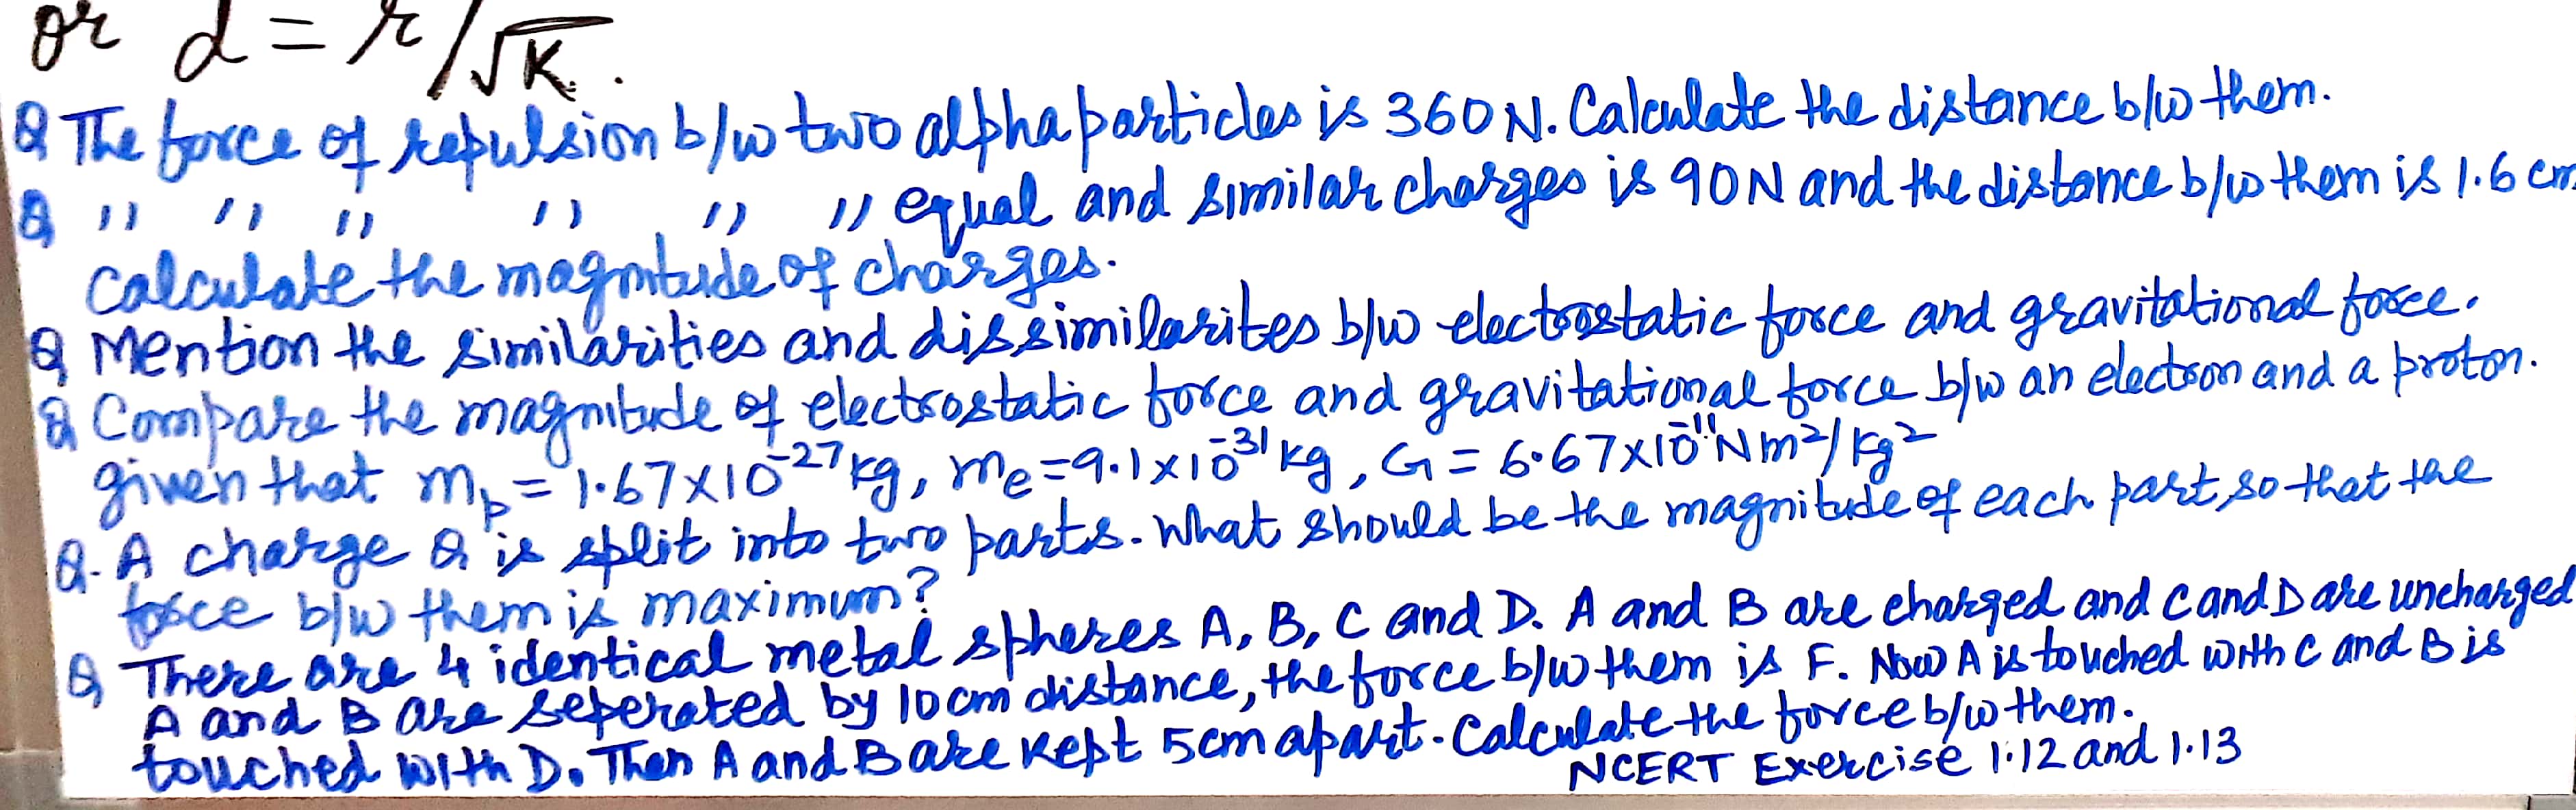 or d = r/√K.
Q The force of repulsion b/w two alpha particles is 360 N. Calculate the distance b/w them.
Q " " " " " " equal and similar charges is 90N and the distance b/w them is 1.6 cm
calculate the magnitude of charges.
Q Mention the similarities and dissimilarites b/w electrostatic force and gravitational force.
Q Compare the magnitude of electrostatic force and gravitational force b/w an electron and a proton.
given that mp = 1.67×10⁻²⁷ kg, me = 9.1×10⁻³¹ kg, G = 6.67×10⁻¹¹ Nm²/kg²
Q. A charge Q is split into two parts. What should be the magnitude of each part, so that the
force b/w them is maximum?
Q There are 4 identical metal spheres A, B, C and D. A and B are charged and C and D are uncharged
A and B are seperated by 10cm distance, the force b/w them is F. Now A is touched with C and B is
touched with D. Then A and B are kept 5cm apart. Calculate the force b/w them.
NCERT Exercise 1.12 and 1.13